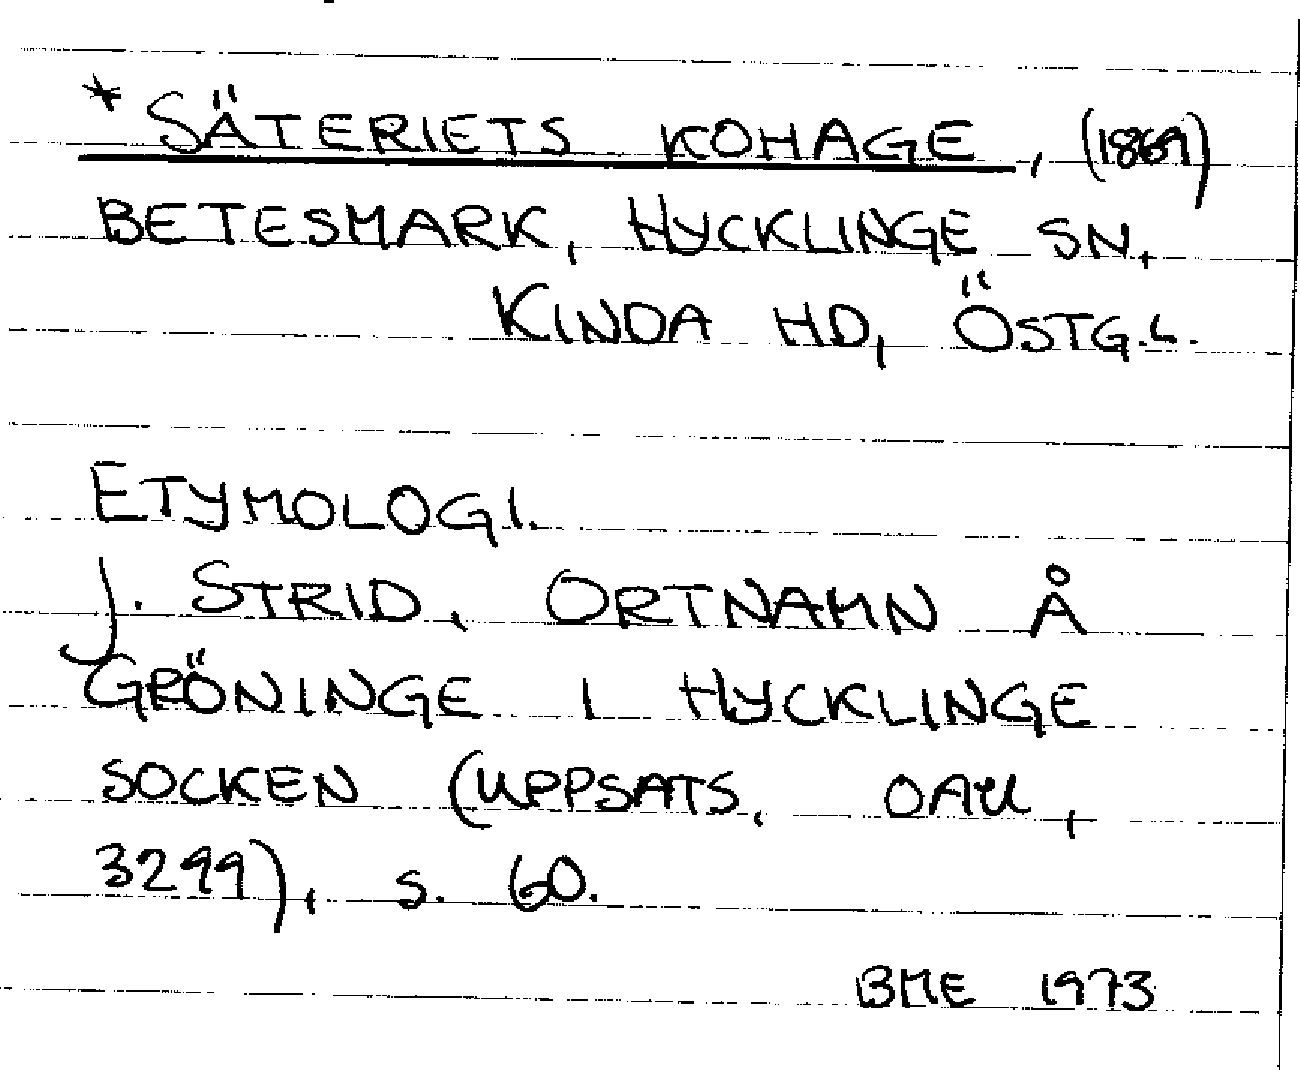 * SÄTERIETS KOHAGE, (1869)
BETESMARK, HYCKLINGE SN,
KINDA HD, ÖSTG.L.
ETYMOLOGI.
J. STRID, ORTNAMN Å
GRÖNINGE I HYCKLINGE
SOCKEN (UPPSATS, OAU,
3299), s. 60.
BME 1973